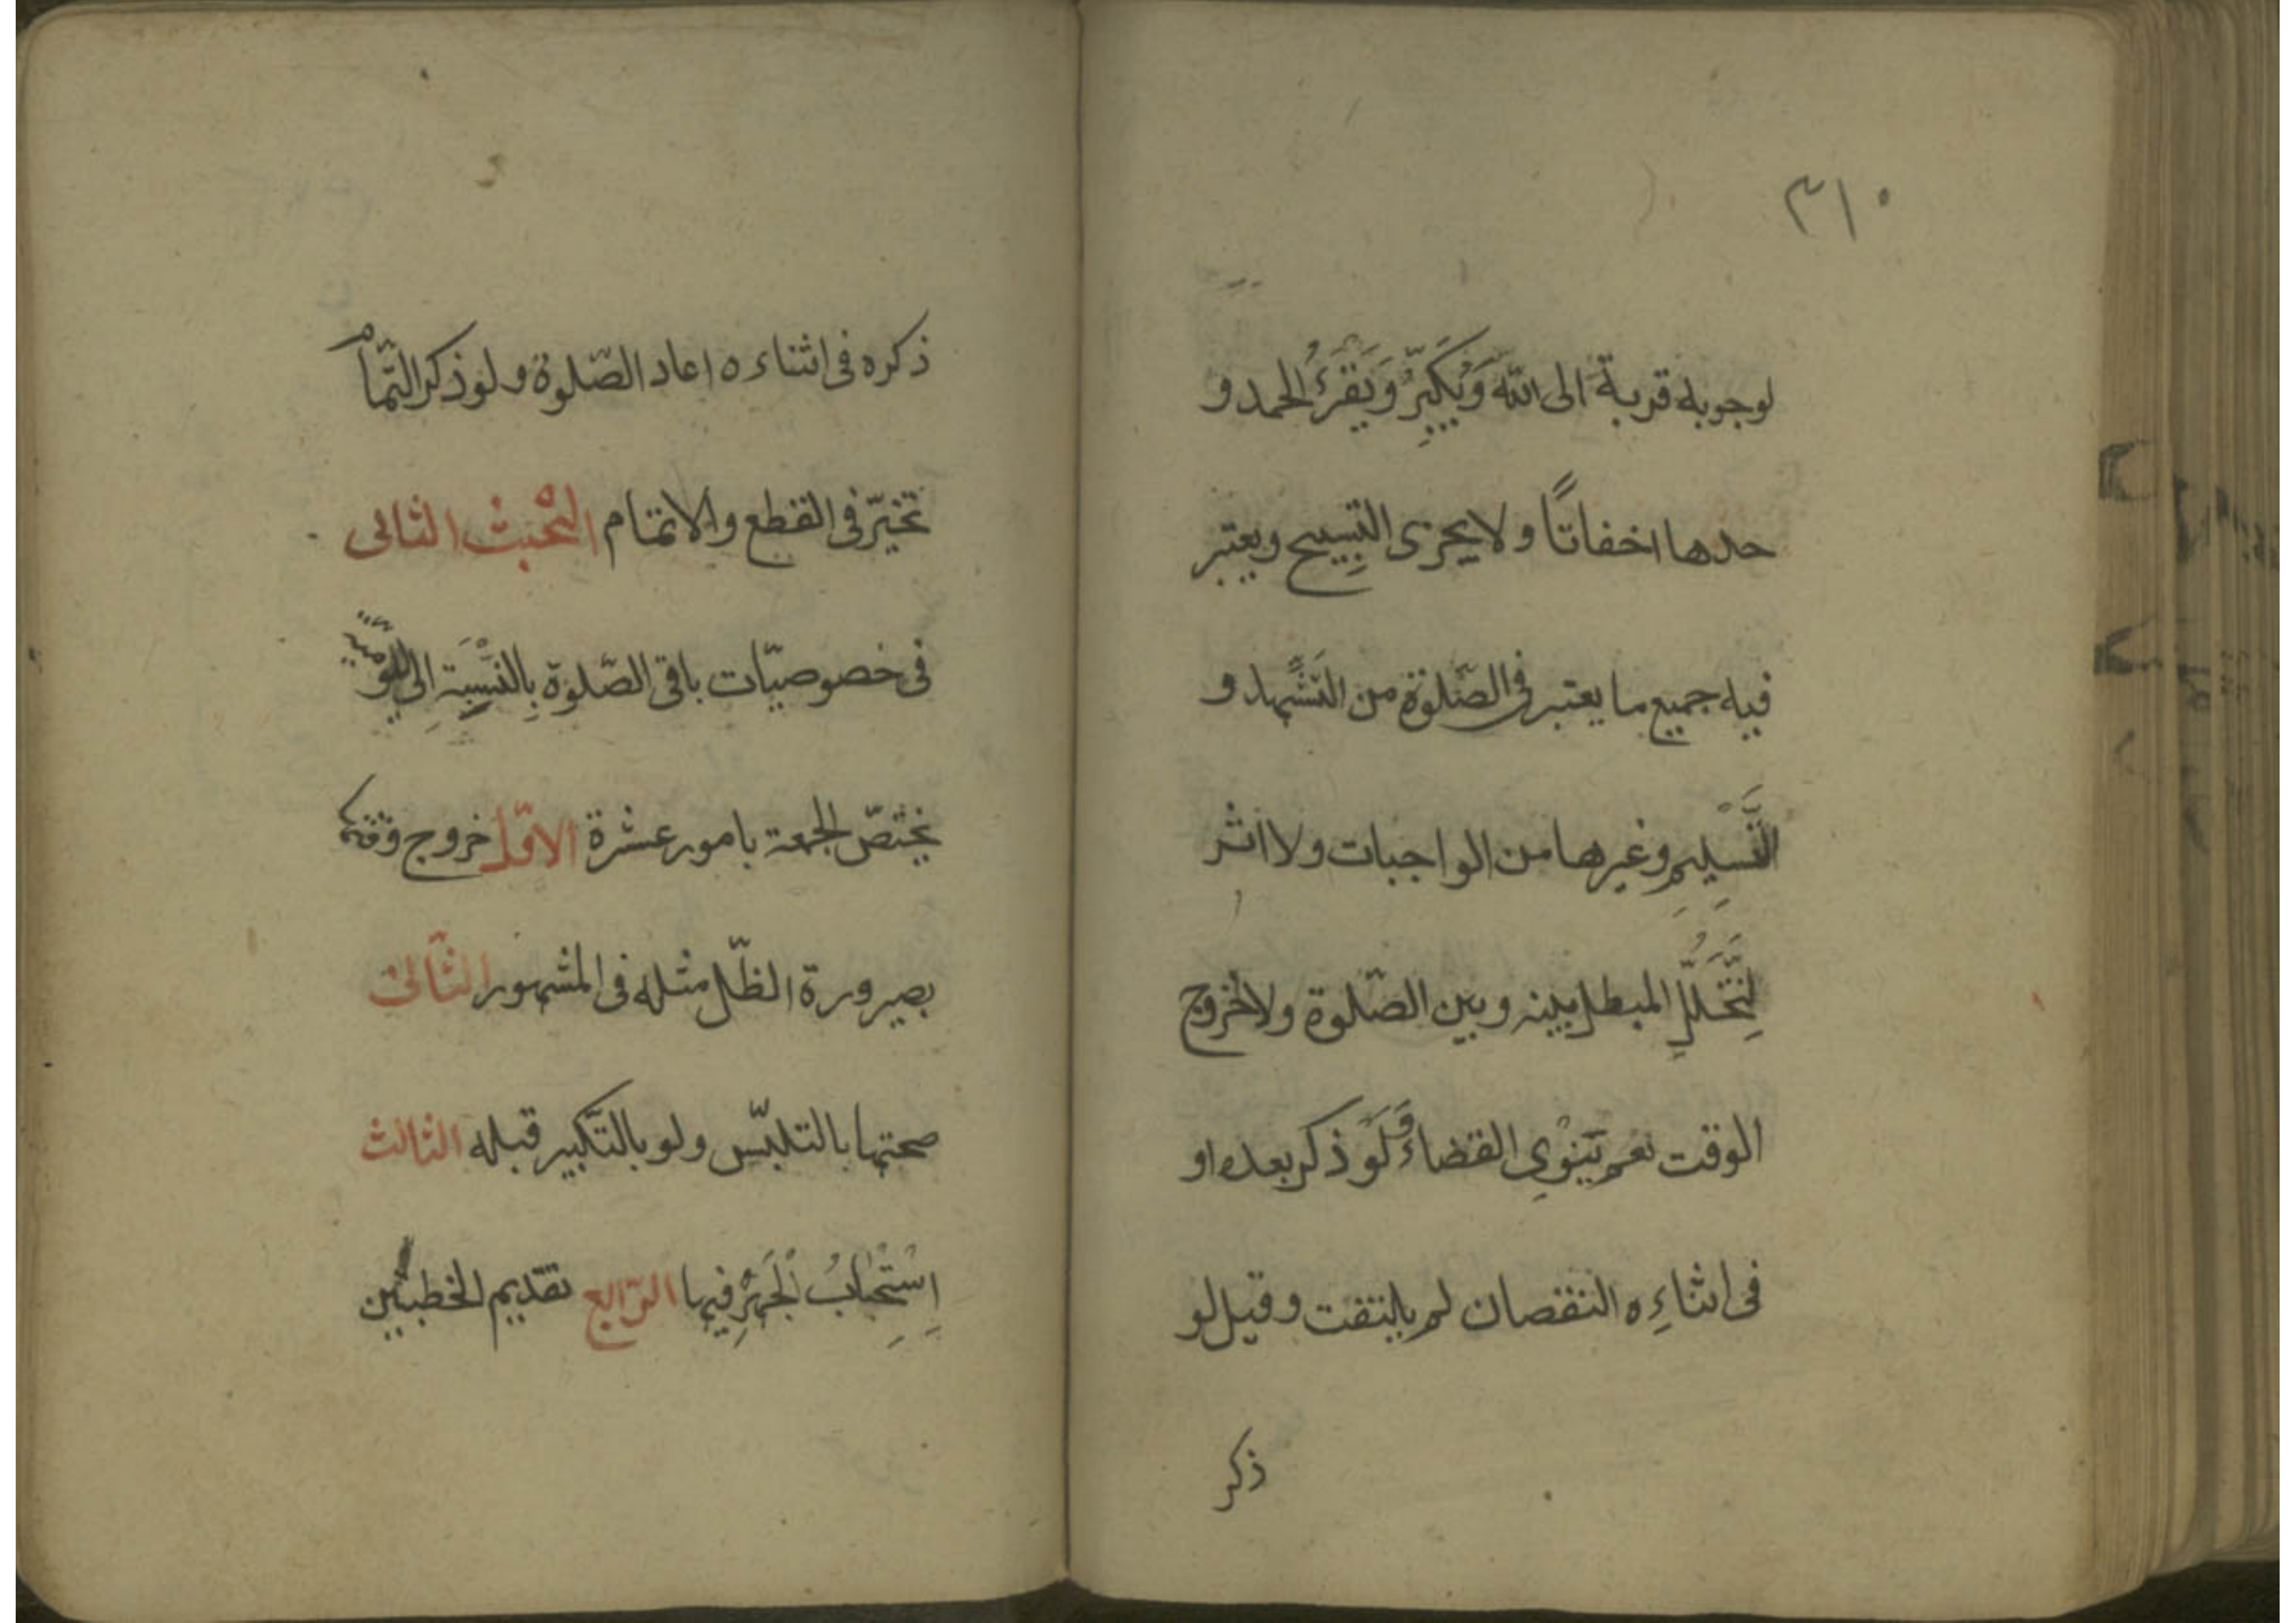 ٣١٠
لوجوبه قربة الى الله وَيُكَبِّرُ وَيَقْرَءُ الحمد و
حدها اخفاتًا ولا يجزى التسبيح ويعتبر
فيه جميع ما يعتبر فى الصّلوة من التَشَهُّد و
التَّسْلِيمِ وغيرها من الواجبات ولا اثر
لِتَخَلُّلِ المبطل بينه وبين الصّلوة ولا خروج
الوقت نعم يَنْوِى القضاءَ وَلَو ذكر بعده او
فى اثناءِه النقصان لم يلتفت وقيل لو
ذكر
ذكره فى اثناءه اعاد الصّلوة ولو ذكر التّمام
تخيّر فى القطع والاتمام البحْث الثانى
فى خصوصيّات باقى الصّلوة بِالنِّسْبَةِ الى اليوميّة
يختصّ الجمعة بامور عشرة الاوّل خروج وقتها
بصيرورة الظّل مثله فى المشهور الثّانى
صحتها بالتلبّس ولو بالتّكبير قبله الثالث
اِسْتِحْبابُ الْجَهْرِ فيها الرّابع تقديم الخطبتين